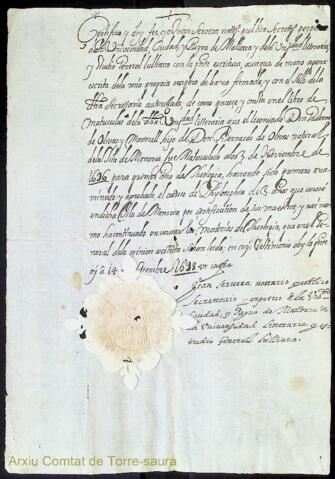 Certifico y doy fee yo Juan Servera notti. publico Secretto. perpetuo
de la Universidad, Ciudad, y Reyno de Mallorca y de la Unsidad. litteraria
y studio General luliano con la pnte. escritura, aunque de mano agena
escrita de la mia propria nombre de baxo firmada, y con el sello de la
dha. Secretaria autorizada, de como parece y consta en el libro de
Matriculas de la dha. Unsidad. litteraria que el licenciado Don
de Olives y Martorell hijo de Don Bernardo de Olives natural
de la Isla de Menorca fue Matriculado a los 5 de Noviembre de
1696 para primer año de Theologia, haviendo sido primero exa
minado y aprobado el curso de Philosophia de 3 años que curso
en dicha Isla de Menorca por certification de sus maestros, y assi mes
mo ha continuado en cursar las materias de theologia, que en el
neral de la opinion escotista se han leido, en cuyo testimonio doy la pnte.
oy a 14 1698 ut infra
Joan Servera notario publico
Secretario perpetuo de la Unidad
Ciudad, y Reyno de Mallorca
de la Universidad Literaria y es
tudio General Lulliano.
Arxiu Comtat de Torre-saura